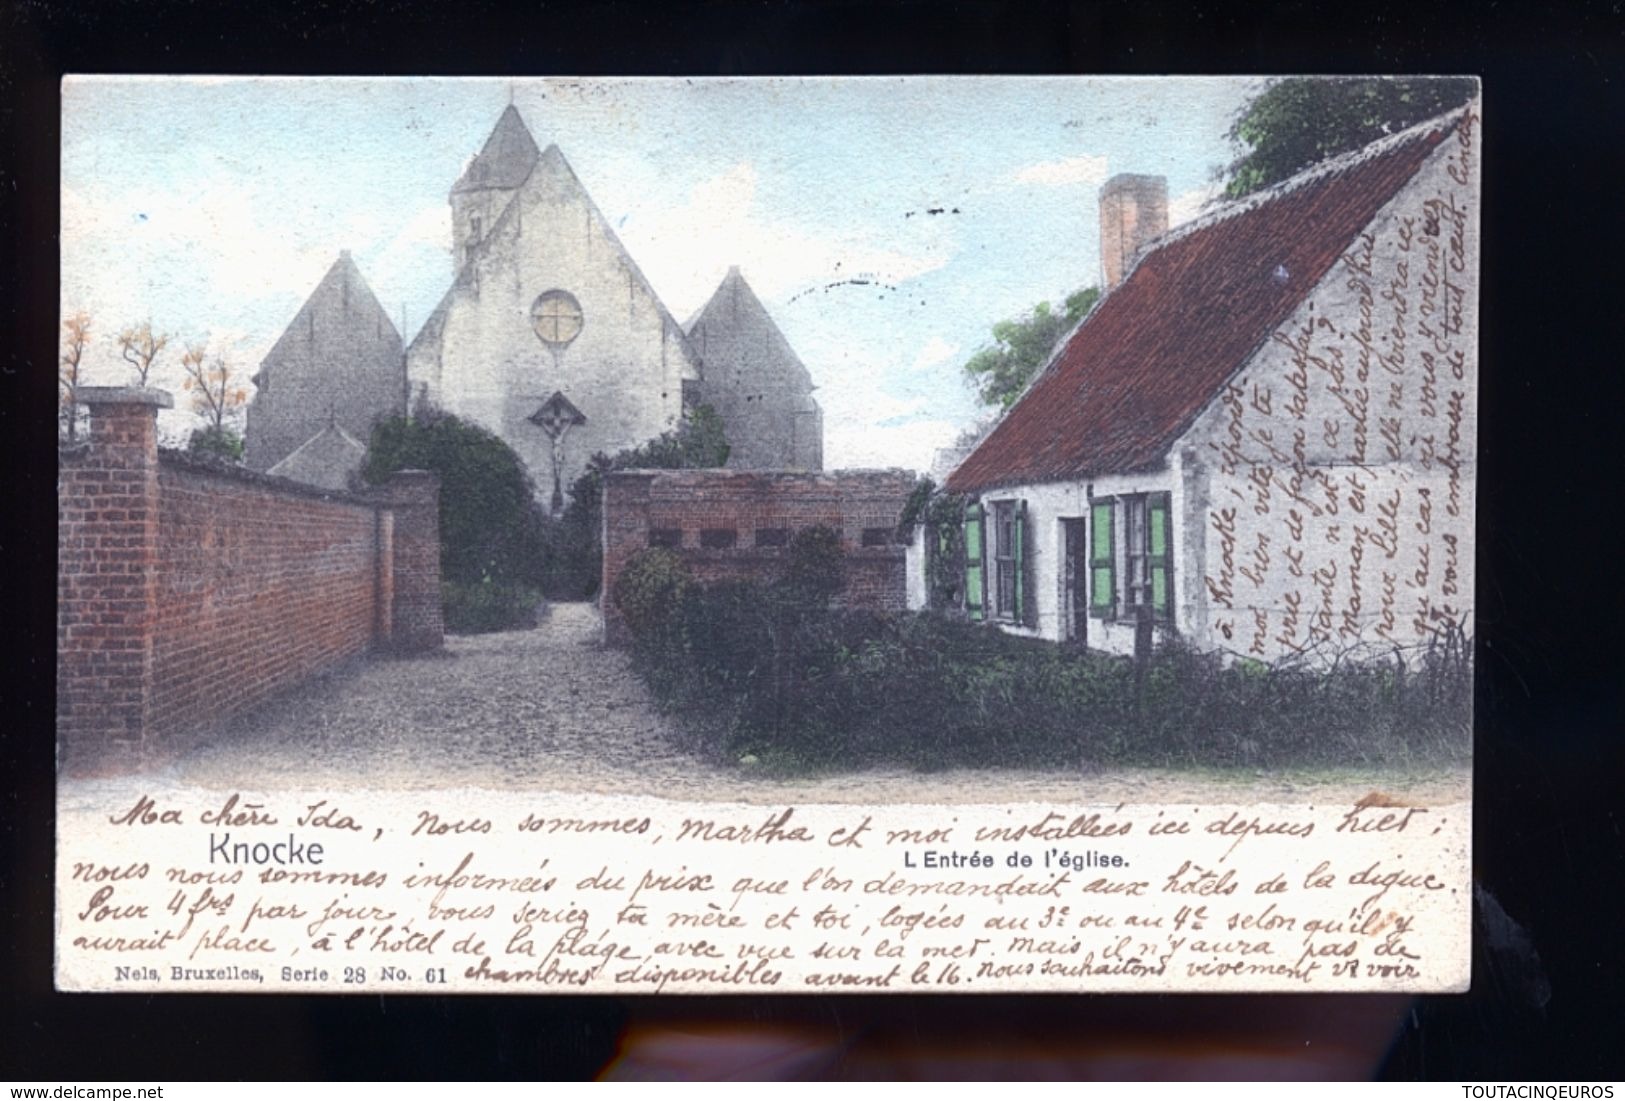 Ma chère Ida, nous sommes, Martha et moi installées ici depuis hier;
Knocke
L Entrée de l'église.
nous nous sommes informées du prix que l'on demandait aux hôtels de la digue.
Pour 4 frs par jour, vous seriez ta mère et toi, logées au 3e ou au 4e selon qu'il y
aurait place, à l'hôtel de la plage, avec vue sur la mer. Mais il n'y aura pas de
chambres disponibles avant le 16. Nous souhaitons vivement vs voir
Nels, Bruxelles, Serie 28 No. 61
à Knocke, réponds-
moi bien vite je te
prie et de façon satisfai-
sante n'est ce pas?
Maman est partie aujourd'hui
pour Lille, elle ne viendra ici
qu'au cas où vous y viendrez.
Je vous embrasse de tout cœur.
www.delcampe.net
TOUTACINQEUROS